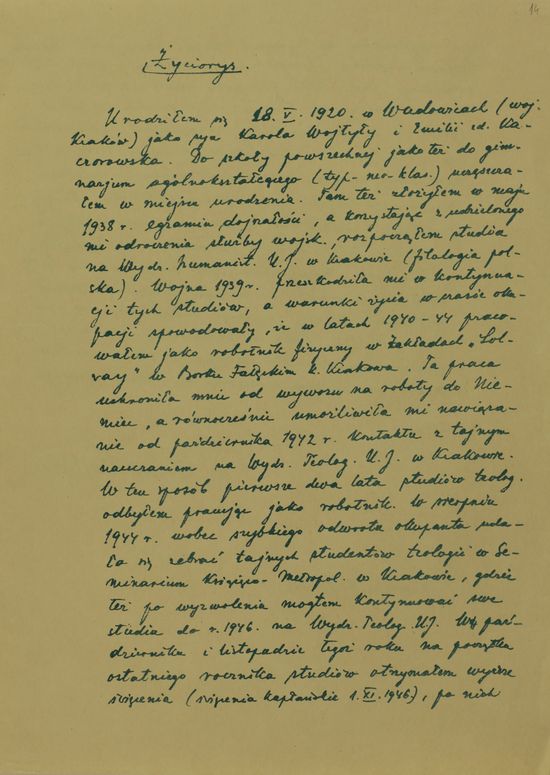 14
Życiorys.
Urodziłem się 18. V. 1920. w Wadowicach (woj.
Kraków) jako syn Karola Wojtyły i Emilii zd. Ka-
czorowska. Do szkoły powszechnej jako też do gim-
nazjum ogólnokształcącego (typ - neo-klas.) uczęszcza-
łem w miejscu urodzenia. Tam też złożyłem w maju
1938 r. egzamin dojrzałości, a korzystając z udzielonego
mi odroczenia służby wojsk., rozpocząłem studia
na Wydz. humanist. U.J. w Krakowie (filologia pol-
ska). Wojna 1939 r. przeszkodziła mi w kontynua-
cji tych studiów, a warunki życia w czasie oku-
pacji spowodowały, że w latach 1940-44 praco-
wałem jako robotnik fizyczny w Zakładach „Sol-
vay" w Borku Fałęckim k. Krakowa. Ta praca
uchroniła mnie od wywozu na roboty do Nie-
miec, a równocześnie umożliwiła mi nawiąza-
nie od października 1942 r. kontaktu z tajnym
nauczaniem na Wydz. Teolog. U.J. w Krakowie.
W ten sposób pierwsze dwa lata studiów teolog.
odbyłem pracując jako robotnik. W sierpniu
1944 r. wobec szybkiego odwrotu okupanta uda-
ło się zebrać tajnych studentów teologii w Se-
minarium Książęco-Metropol. w Krakowie, gdzie
też po wyzwoleniu mogłem kontynuować swe
studia do r. 1946. na Wydz. Teolog. U.J. W paź-
dzierniku i listopadzie tegoż roku na początku
ostatniego rocznika studiów otrzymałem wyższe
święcenia (święcenia kapłańskie 1. XI. 1946), po nich